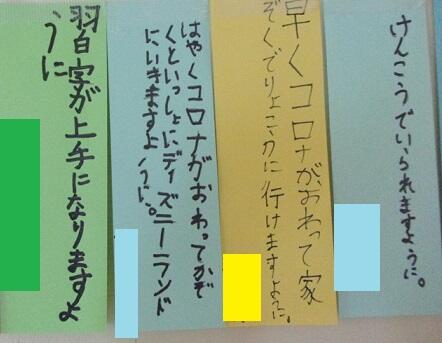 けんこうでいられますように。
早くコロナがおわって家
ぞくでりょこうに行けますように。
はやくコロナがおわってかぞ
くといっしょにディズニーランド
にいきますように。
習字が上手になりますよ
うに